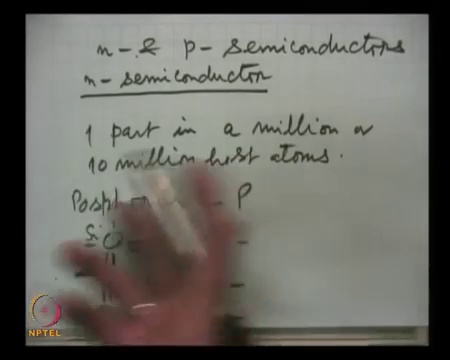 n- & p- semiconductors
n- semiconductor
1 part in a million or
10 million host atoms.
P
Si
NPTEL